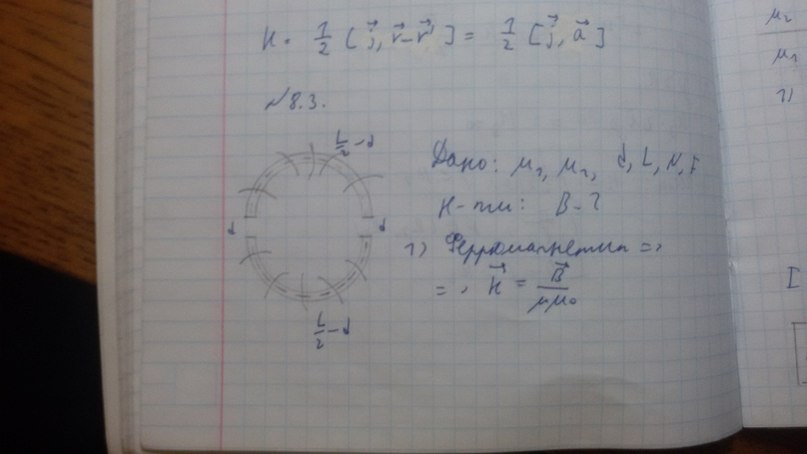 H = 1/2 [j⃗, r⃗ - r⃗'] = 1/2 [j⃗, a⃗]
№8.3.
L/2 - d
Дано: μ₁, μ₂, d, L, N, I
Н-ти: B - ?
d
d
1) Ферромагнетик =>
=> H⃗ = B⃗/μμ₀
L/2 - d
μ₂
μ₁
1)